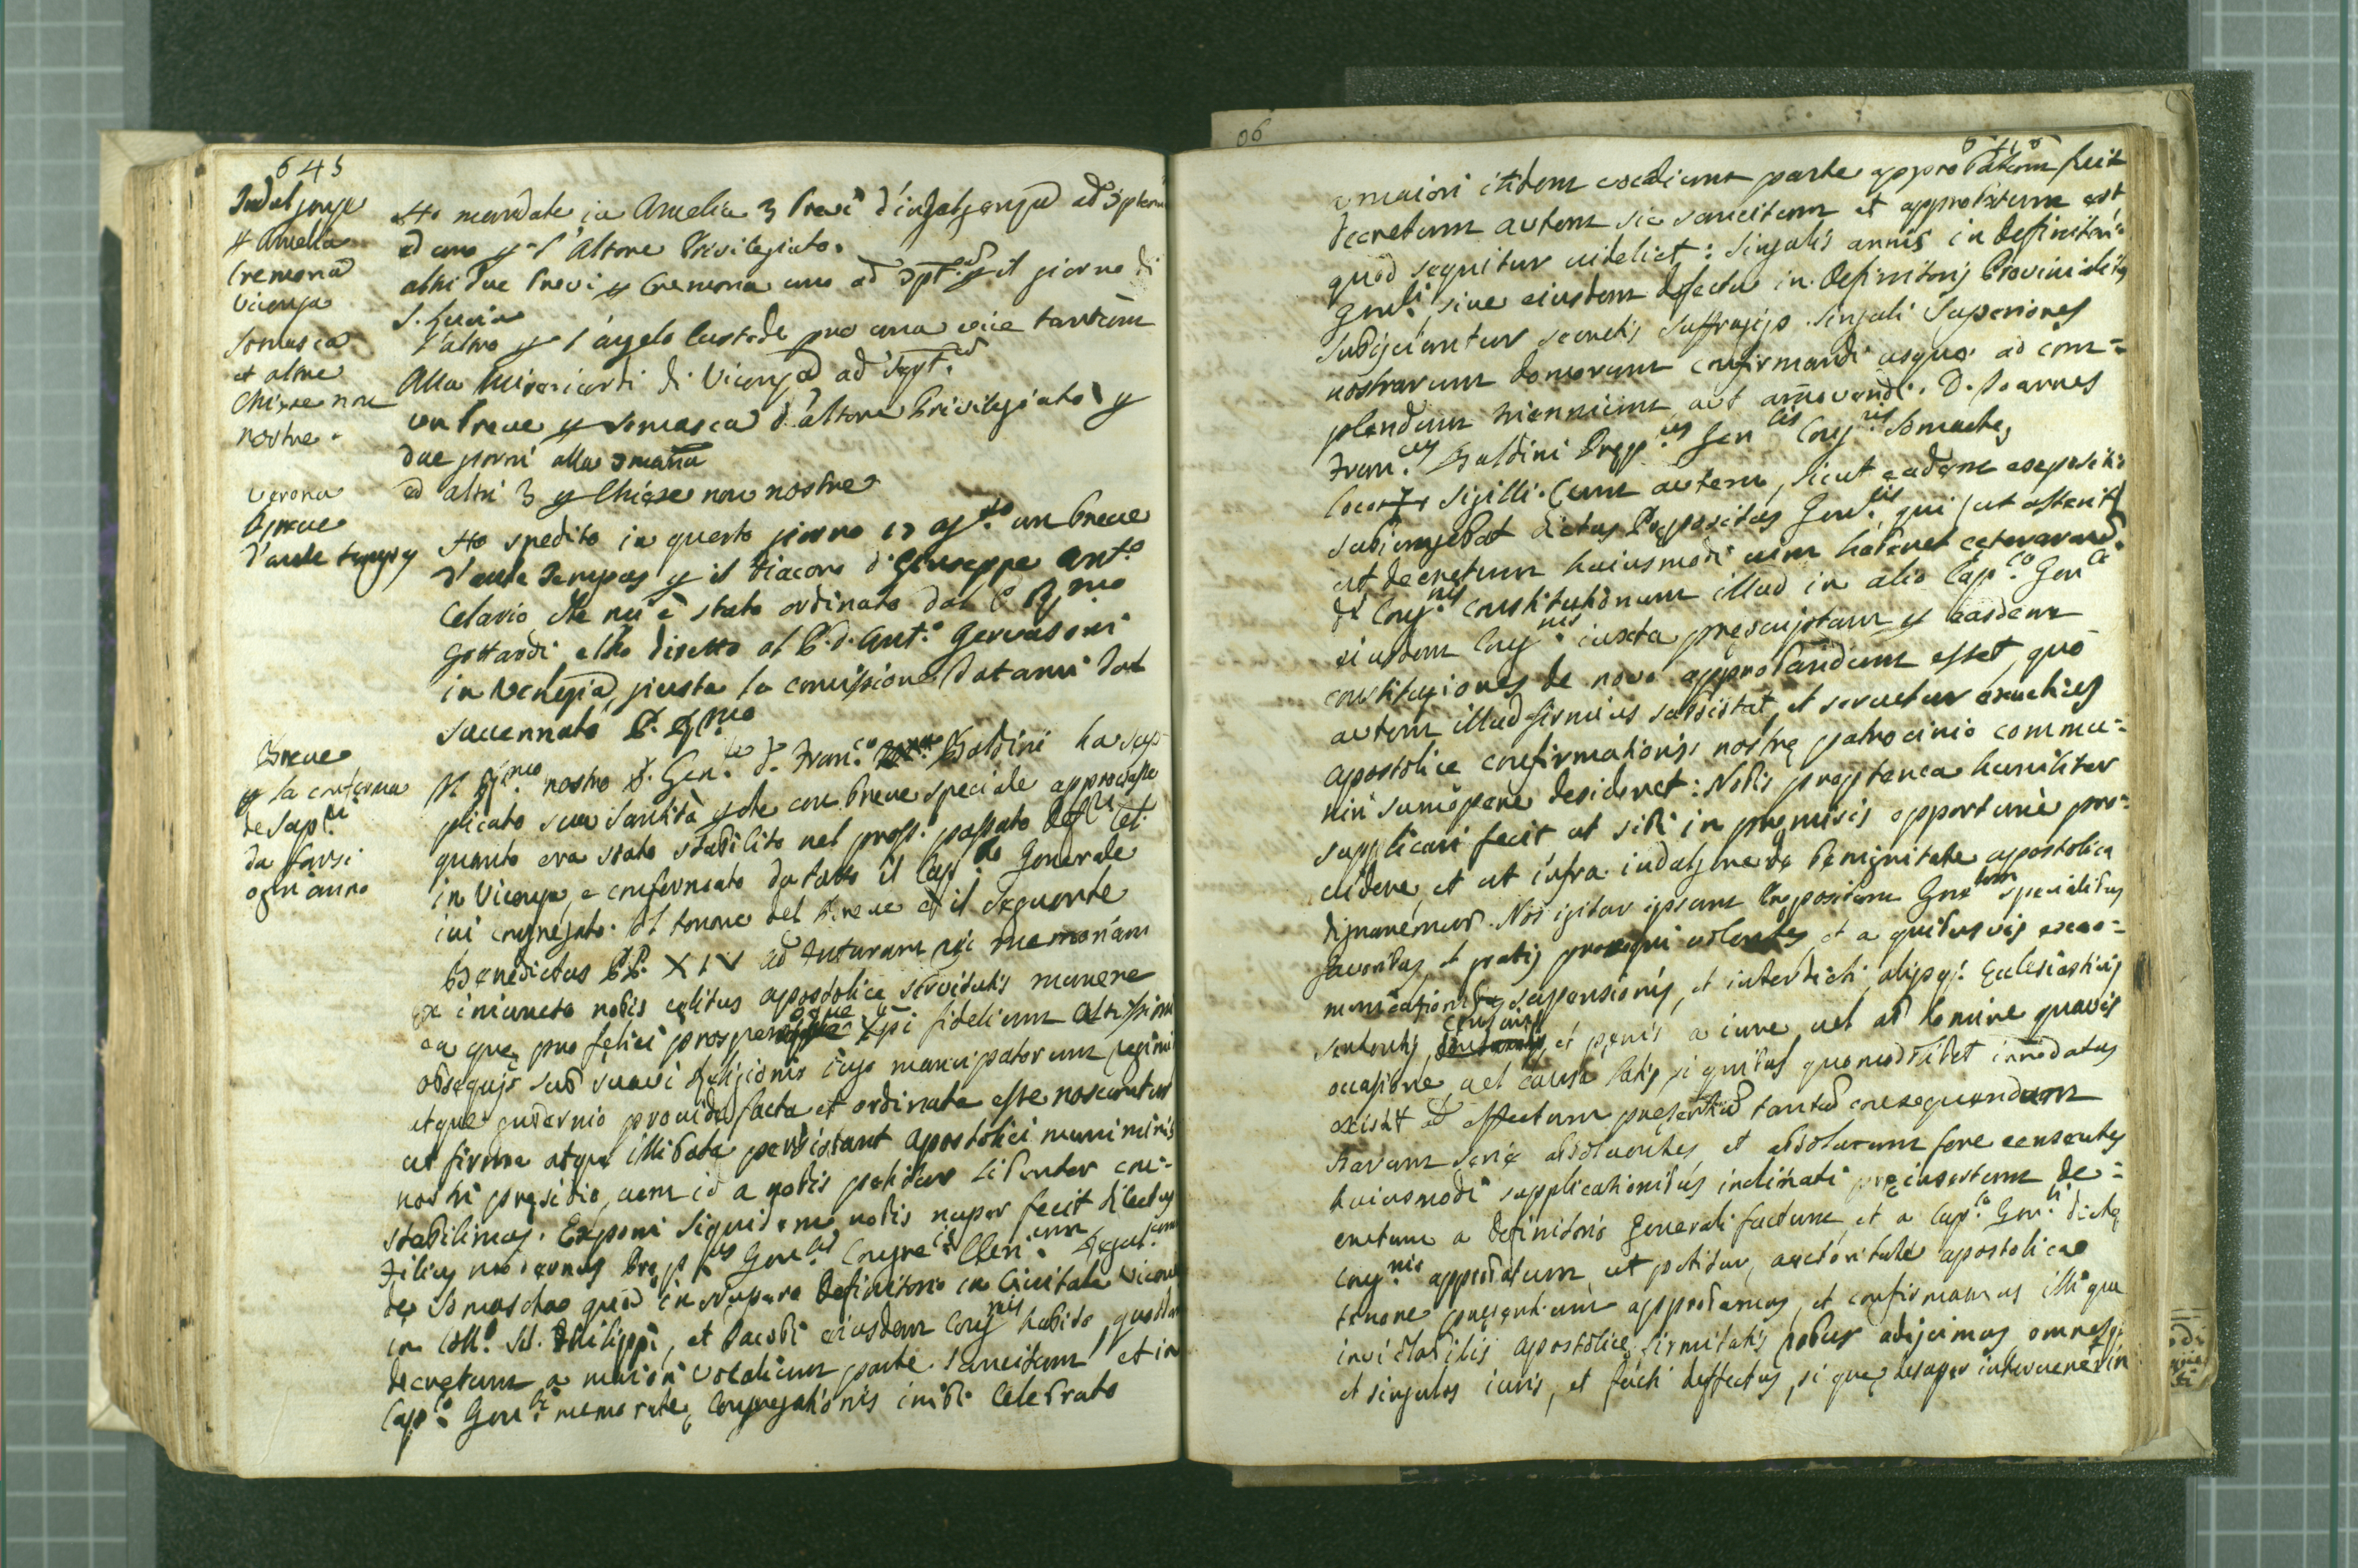 645
Indulgenze
p Amelia
Cremona
Vicenza
Somasca
et altre
Chiese non
nostre.
Ho mandate in Amelia 3 Brevi d'indulgenza ad 7plem
ed uno p l'Altare Privilegiato.
altri due Brevi p Cremona uno ad 7pt. p il giorno di
S. Lucia
l'altro p l'angelo Custode pro una vice tantum
Alla Misericordi di Vicenza ad sept.
un Breve p Somasca d'altare Privilegiato p
due giorni alla 7mana
ed altri 3 p Chiese non nostre
Verona
Breve
d'ante tempus
Ho spedito in questo giorno 17 agto un breve
d'ante tempus p il diacono d. Giuseppe Anto
Celario che nu è stato ordinato dal P. Rmo
Gottardi e l'ho diretto al P. d. Anto Gervasoni
in Venezia, giusta la comissione datami dal
sucennato P. Rmo
Breve
p la conferma
de Supri
da farsi
ogni anno
Il Rmo nostro P. Gen.le d. Fran.co Baldini ha sup-
plicato sua Santità p che con breve speciale approvasse
quanto era stato stabilito nel pross. passato Defri Cel.
in Vicenza, e confermato da tutto il Cap.lo Generale
ivi congregato. Il tenore del Breve è il seguente
Benedictus PP. XIV ad futuram rei memoriam
Ex iniuncto nobis celitus apostolice servitutis munere
ea que pro felici prosperoque Xpi fidelium Altissimi
obsequijs sub suavi Religionis iugo mancipatorum regimi
atque gubernio provide facta et ordinata esse noscuntur
ut firma atque illibata persistant Apostolici muniminis
nostri presidio, cum id a nobis petitur libenter con-
stabilimus. Exponi siquidem nobis nuper fecit dilectus
Filius modernus Prep.us Gen.lis Congre.nis Cleri.um Regul.ium
de Somascha quod in nupero Definitorio in Civitate Vicen
in Coll.o SS. Philippi, et Jacobi eiusdem Cong.nis habito, quoddam
decretum a maiori vocalium parte sancitum et in
Cap.lo Gen.li memorate Congregationis inibi celebrato
06
646
a maiori itidem vocalium parte approbatum fuit
decretum autem sic sancitum et approbatum est
quod sequitur videlicet: Singulis annis in Definitori-
Gen.li, sive eiusdem defectu in Definitorijs Provincialibus
subijciantur secretis suffragijs singuli Superiores
nostrarum domorum confirmandi usque ad com-
plendum triennium aut amovendi. D. Joannes
Fran.cus Baldini Prep.us Gen.lis Cong.nis Somasche,
Loco + Sigilli. Cum autem, sicut eadem expositio
subiungebat dictus Prepositus Gen.lis, qui ut asserit
ut decretum huiusmodi vim haberet ceterarum
di Cong.nis Constitutionum illud in alio Cap.lo Gen.le
eiusdem Cong.nis iuxta prescriptum p easdem
constitutiones de novo approbandum esset, quo
autem illud firmius subsistat, et servetur exactius
apostolice confirmationis nostre patrocinio commu-
niri summopere desideret: Nobis propterea humiliter
supplicari fecit ut sibi in premissis opportune pro-
videre, et ut infra indulgere de benignitate apostolica
dignaremur. Nos igitur ipsum Prepositum Gnalem specialibus
favoribus, et gratijs prosequi volentes, et a quibusvis exco-
municationis, suspensionis, et interdicti, alijsq; Ecclesiasticis
sententijs, censuris, et penis a iure, vel ab homine quavis
occasione, vel causa latis, si quibus quomodolibet innodatus
existit ad effectum presentium tantum consequendum
harum serie absolventes, et absolutum fore censentes
huiusmodi supplicationibus inclinati preinsertum de-
cretum a Definitorio Generali factum, et a Cap.lo Gen.li dicte
Cong.nis approbatum, ut petitur, auctoritate apostolica
tenore presentium approbamus, et confirmamus illique
inviolabilis apostolice firmitatis robur adijcimus omnesq;
et singulos iuris, et facti deffectus, si que desuper intervenerin